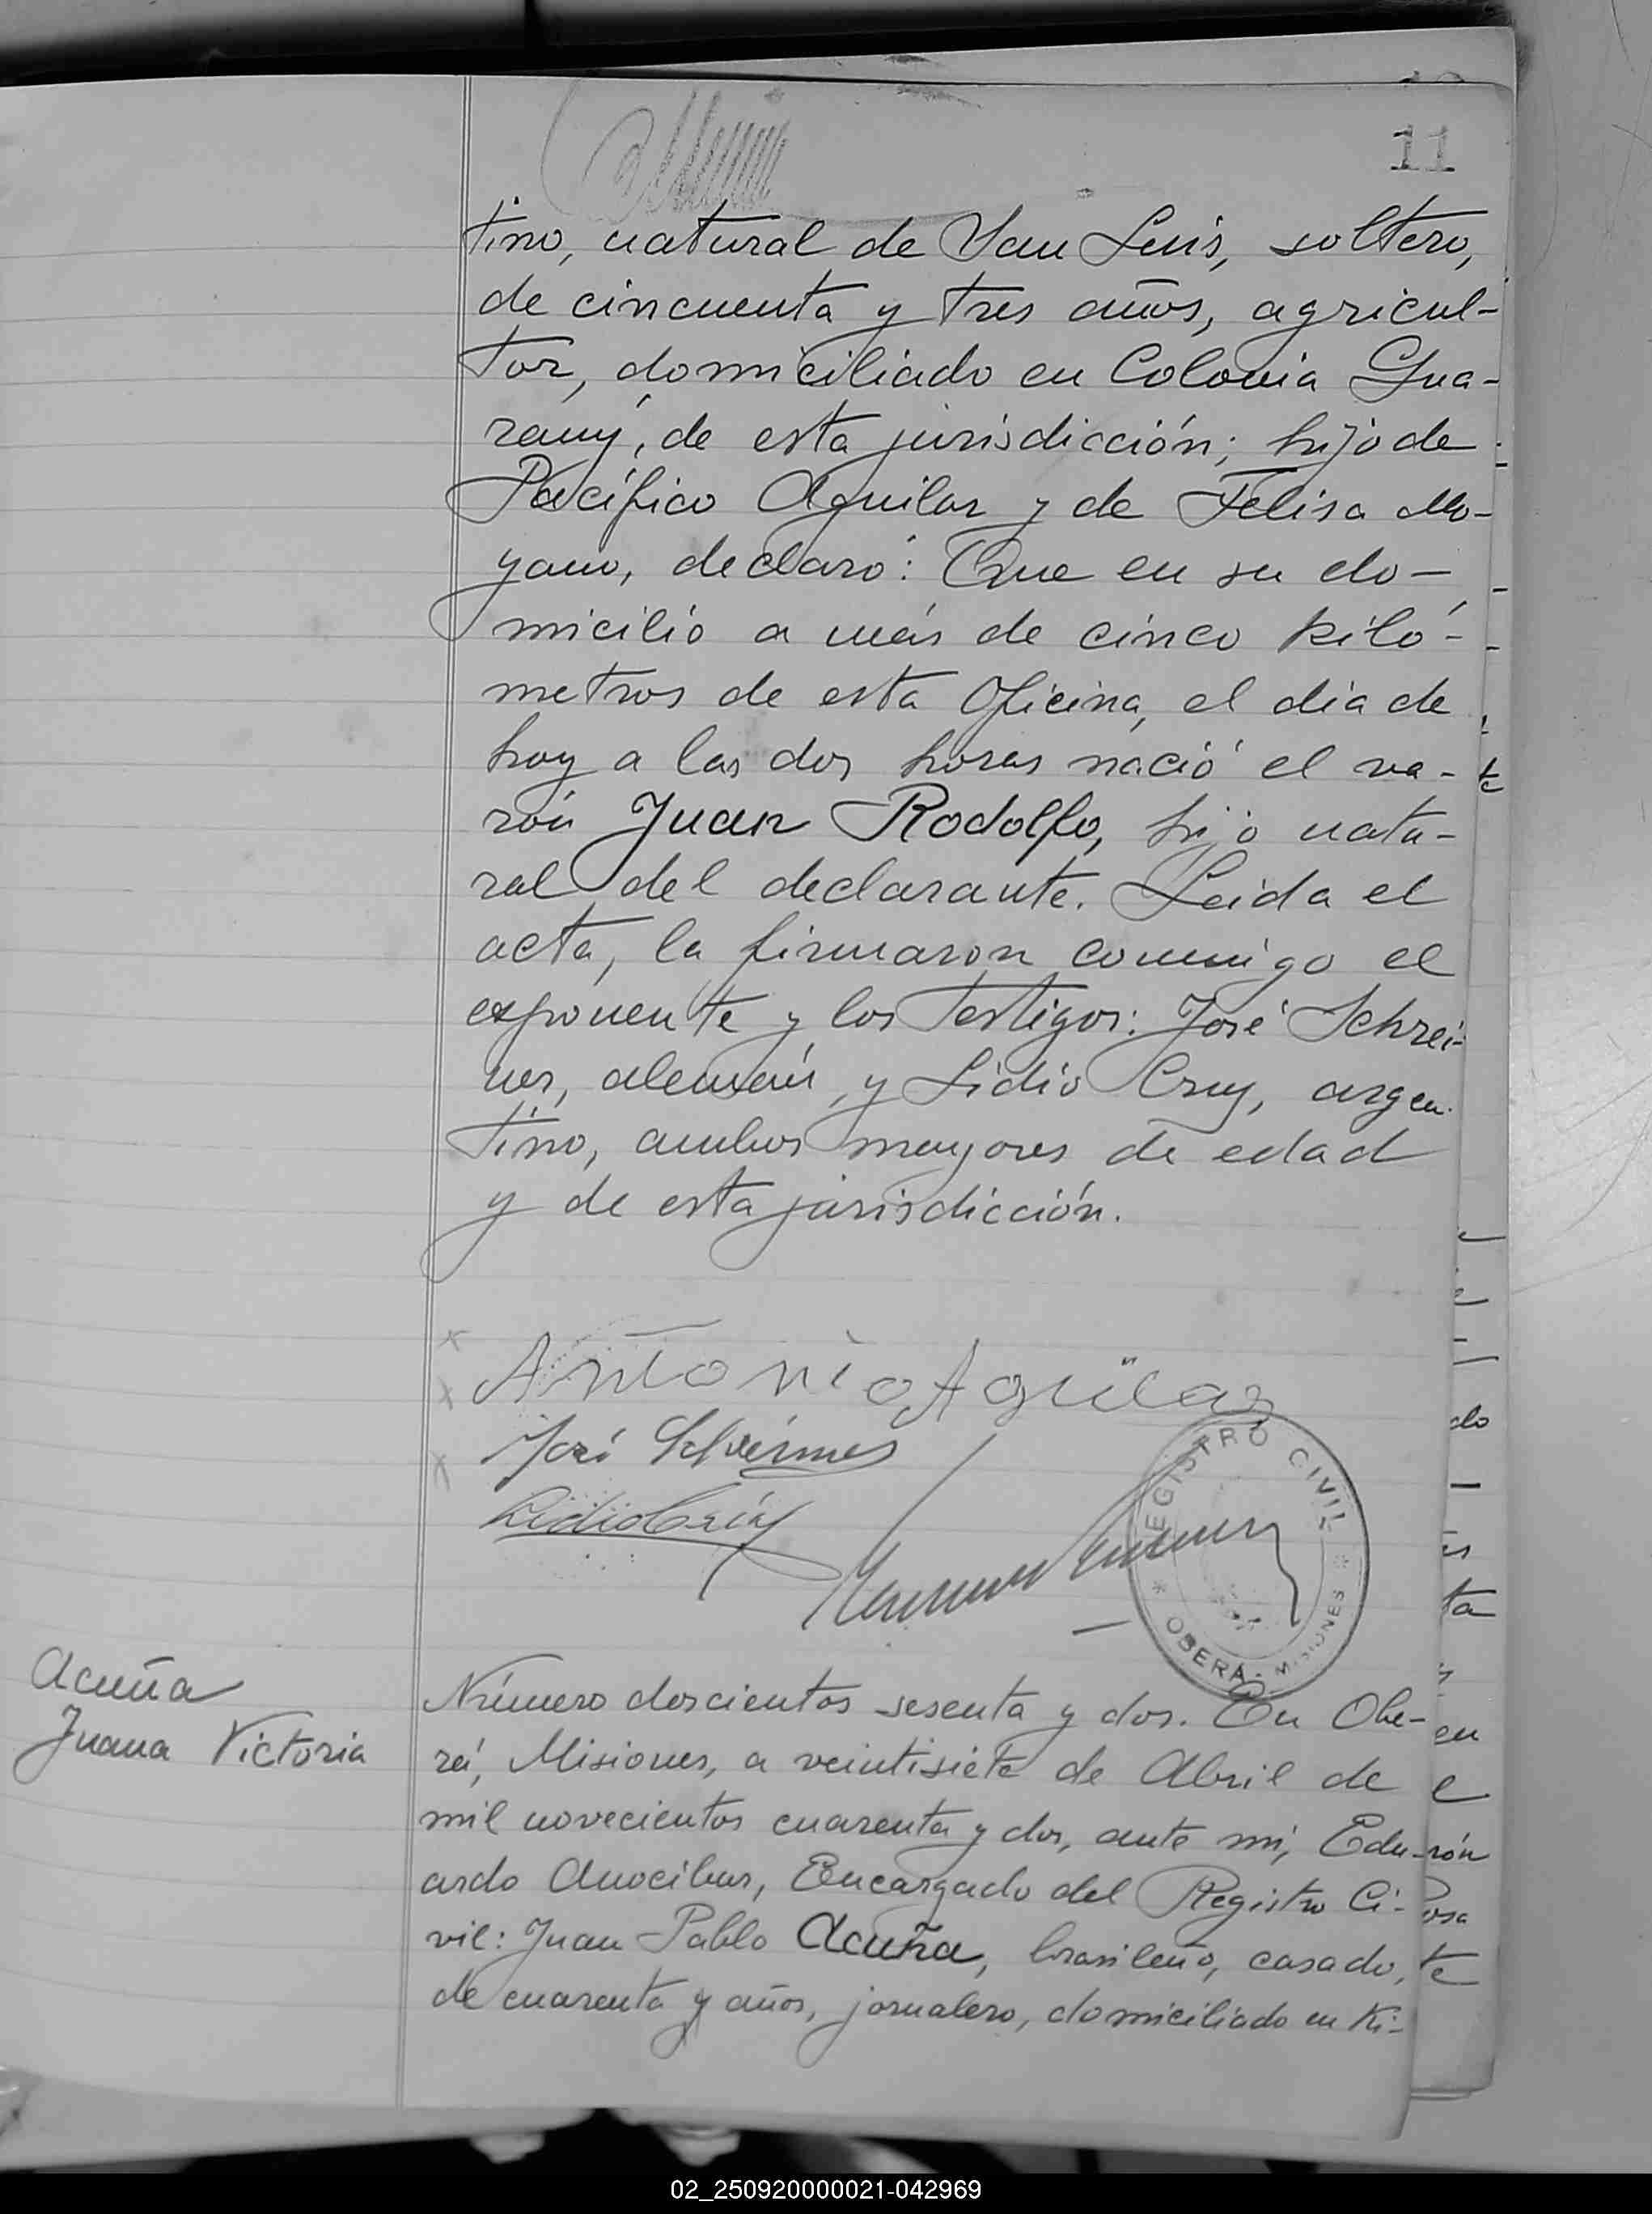 11
tino, natural de San Luis, soltero,
de cincuenta y tres años, agricul-
tor, domiciliado en Colonia Gua-
rany, de esta jurisdicción; hijo de
Pacífico Aguilar y de Felisa Mo-
yano, declaró: Que en su do-
micilio a más de cinco kiló-
metros de esta Oficina, el dia de
hoy a las dos horas nació el va-
rón Juan Rodolfo, hijo natu-
ral del declarante. Leida el
acta, la firmaron conmigo el
exponente y los testigos: José Schrei-
ner, alemán, y Lidio Cruz, argen-
tino, ambos mayores de edad
y de esta jurisdicción.
Antonio Aguilar
José
Lidio Cruz
REGISTRO CIVIL
OBERÁ - MISIONES
Acuña
Juana Victoria
Número doscientos sesenta y dos. En Obe-
rá, Misiones, a veintisiete de Abril de
mil novecientos cuarenta y dos, ante mi, Edu-
ardo Anocibar, Encargado del Registro Ci-
vil: Juan Pablo Acuña, brasileño, casado,
de cuarenta y años, jornalero, domiciliado en Ki-
02_250920000021-042969